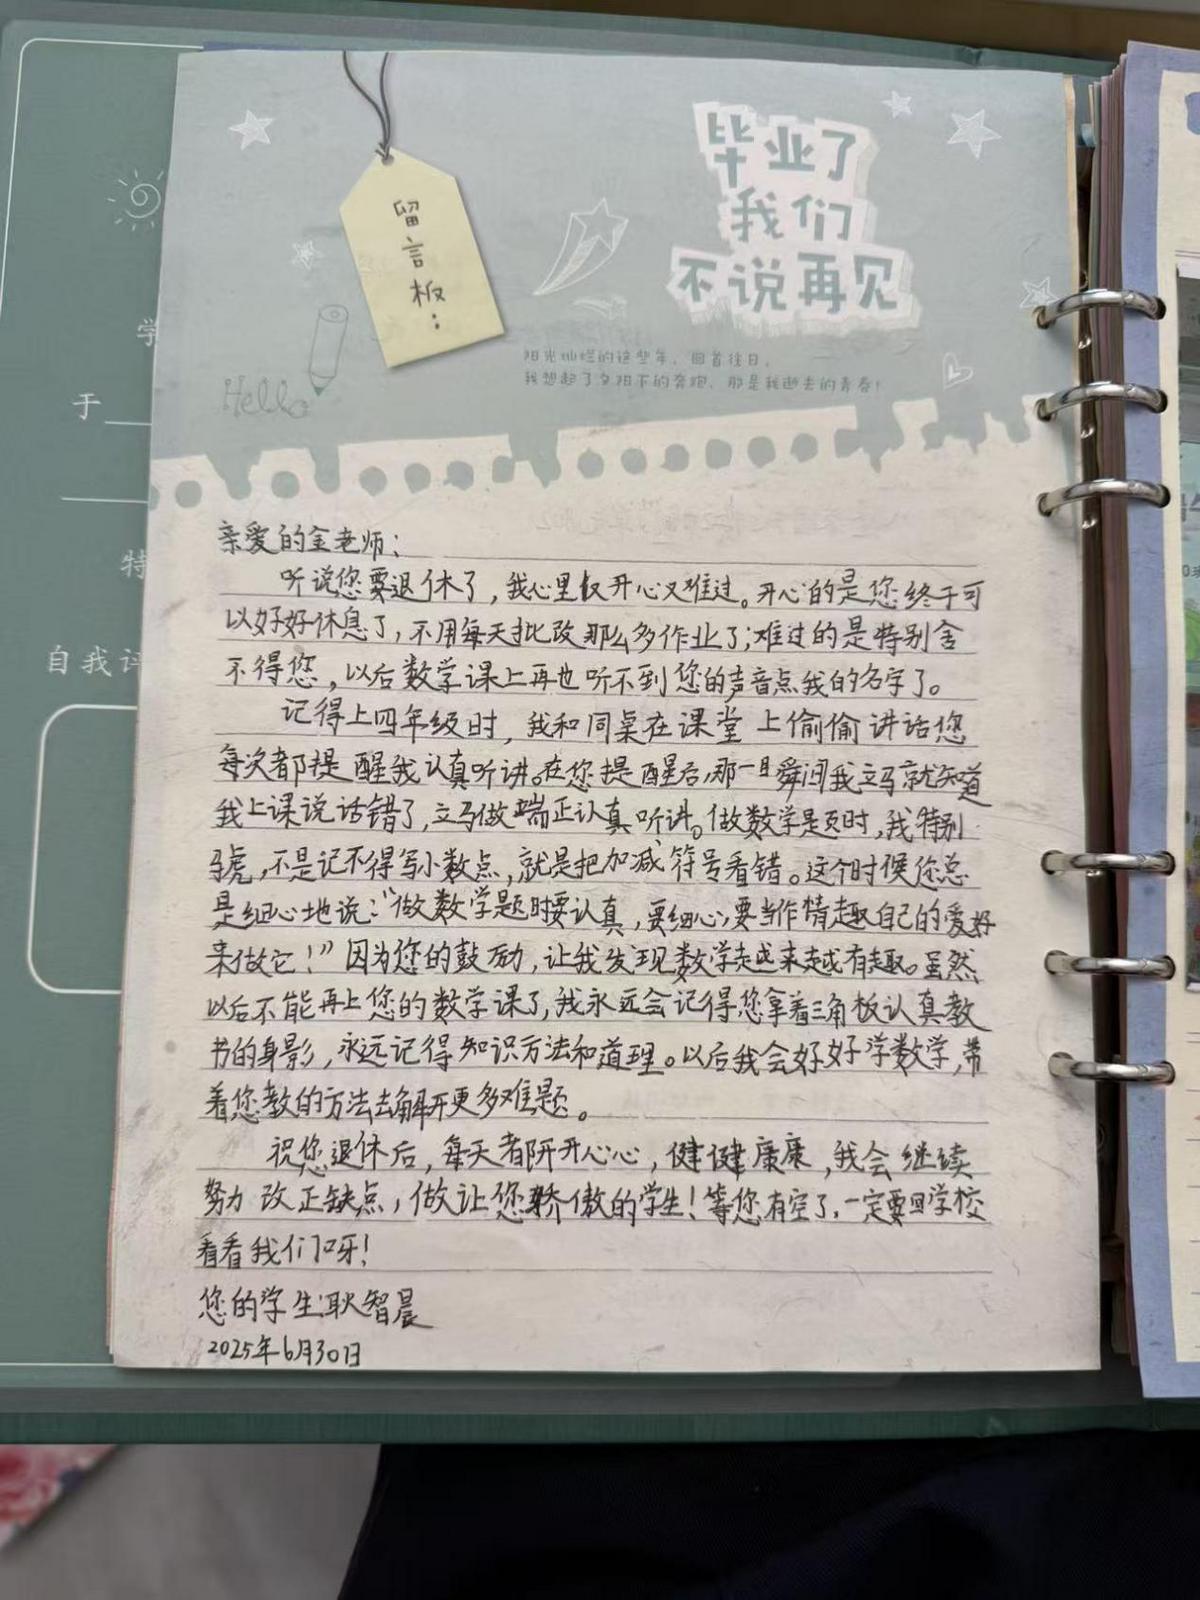 毕业了
我们
不说再见
留言板：
阳光灿烂的这些年，回首往日，
我想起了夕阳下的奔跑，那是我逝去的青春！
Hello
学
于
特
自我评
亲爱的金老师：
听说您要退休了，我心里仅开心又难过。开心的是您终于可
以好好休息了，不用每天批改那么多作业了；难过的是特别舍
不得您，以后数学课上再也听不到您的声音点我的名字了。
记得上四年级时，我和同桌在课堂上偷偷讲话您
每次都提醒我认真听讲。在您提醒后，那一瞬间我立马就知道
我上课说话错了，立马做端正认真听讲。做数学是页时，我特别
马虎，不是记不得写小数点，就是把加减符号看错。这个时候您总
是细心地说：“做数学题时要认真，要细心，要当作情趣自己的爱好
来做它！”因为您的鼓励，让我发现数学越来越有趣。虽然
以后不能再上您的数学课了，我永远会记得您拿着三角板认真教
书的身影，永远记得知识方法和道理。以后我会好好学数学，带
着您教的方法去解开更多难题。
祝您退休后，每天都开开心心，健健康康，我会继续
努力改正缺点，做让您骄傲的学生！等您有空了，一定要回学校
看看我们呀！
您的学生：耿智晨
2025年6月30日